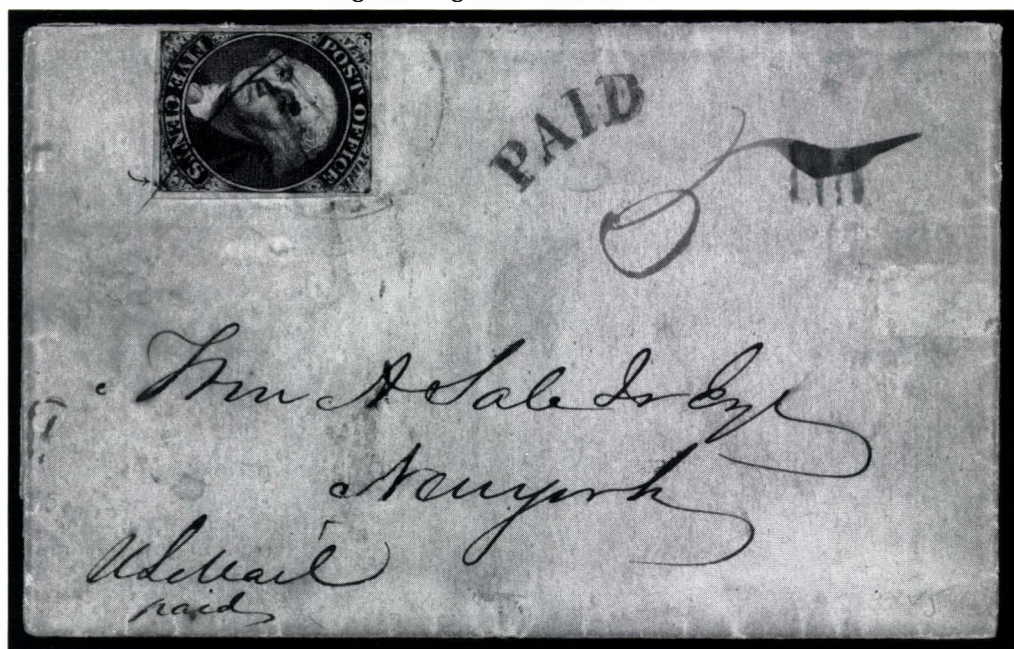 POST OFFICE
FIVE CENTS
PAID
Wm A Sale Jr Esq
New york
U S Mail
paid